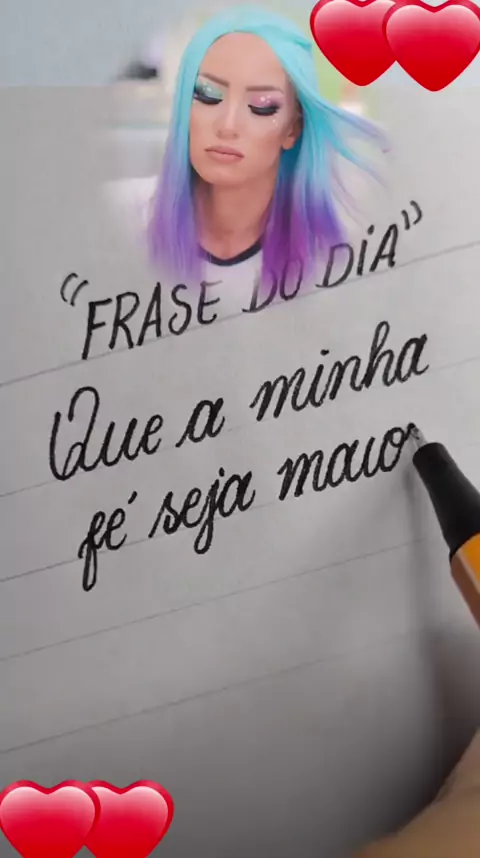 "FRASE DO DIA"
Que a minha
fé seja maio